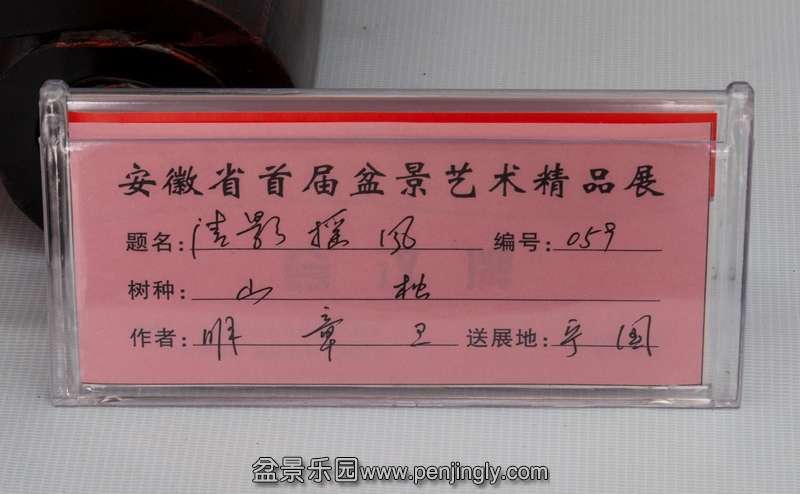 安徽省首届盆景艺术精品展
题名:清影摇风 编号:059
树种:山
作者:章卫 送展地:宁国
盆景乐园www.penjingly.com